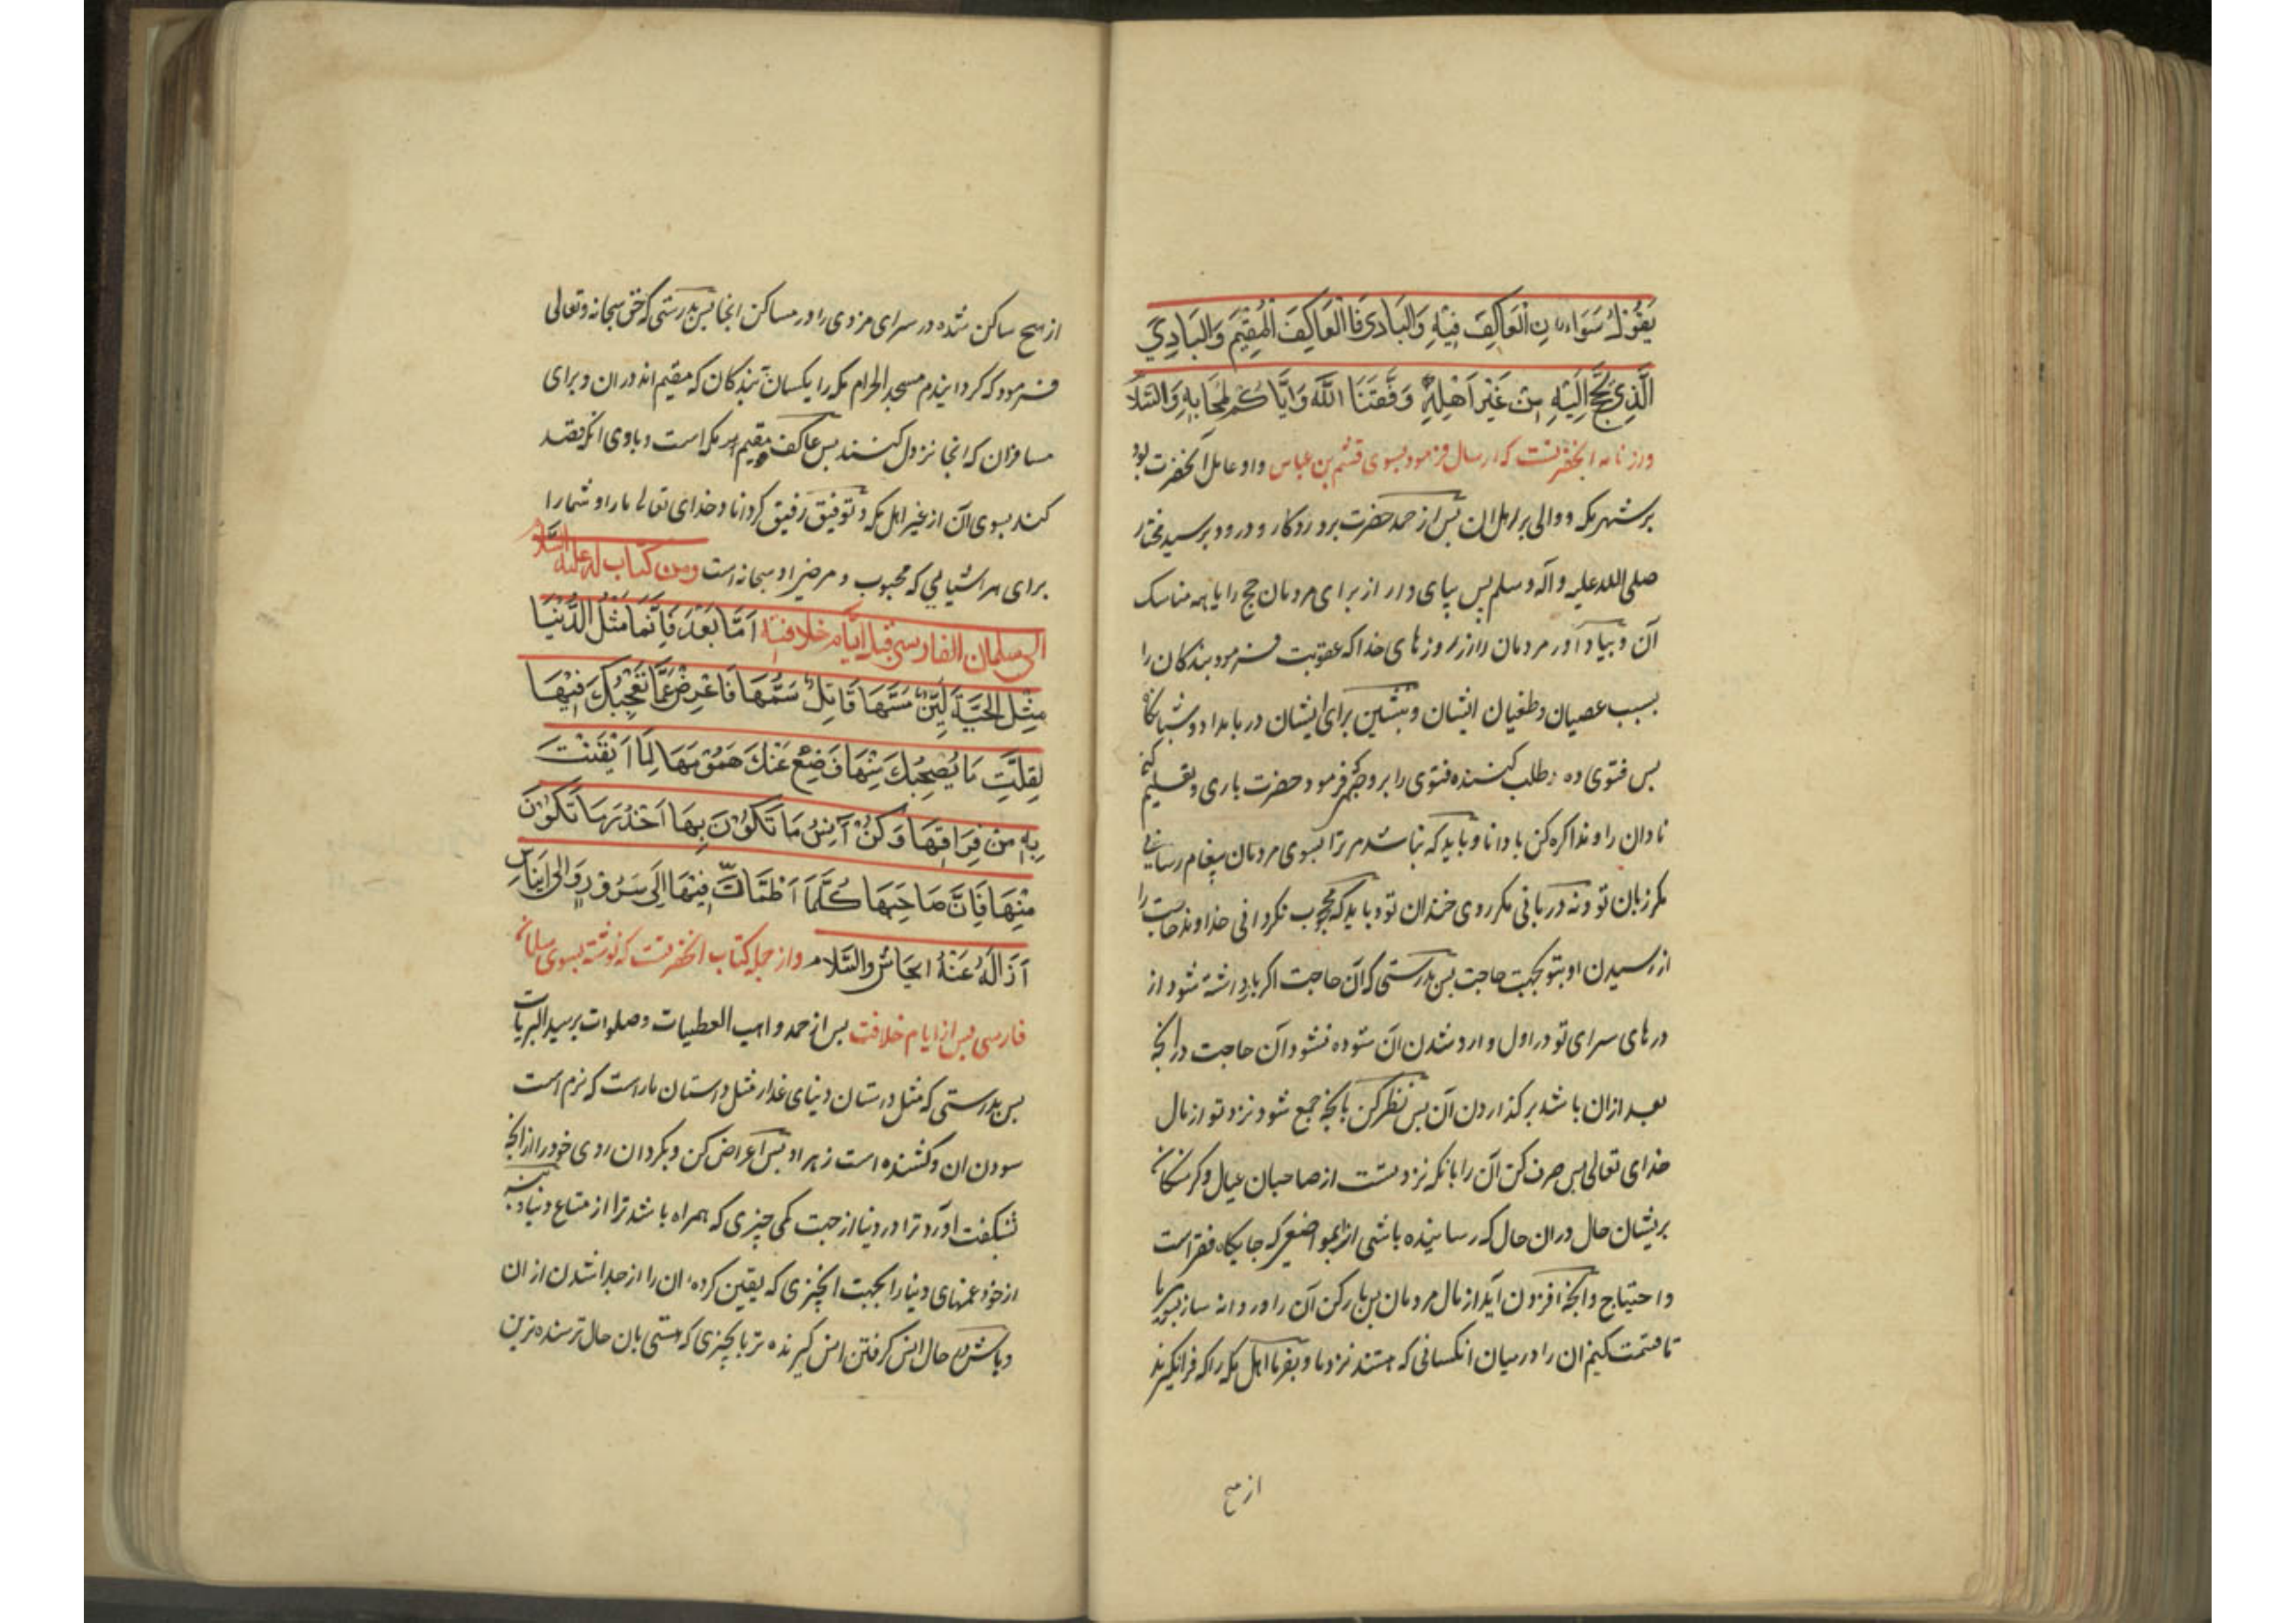 يَقُولُ سَوَاءً نِ الْعَاكِفُ فِيْهِ وَالبَادِى فَالْعَاكِفَ الْمُقِيْمَ وَالبَادِيَ
الَّذِى يَحُجُّ اِلَيْهِ مِنْ غَيْرِ اَهْلِهِ وَفَّقَنَا اللَّهُ وَاِيَّاكُمْ لِمَحَابِهِ وَالسَّلَام
و از نامه انحضرتست که ارسال فرمود بسوی قثم بن عباس و او عامل آنحضرت بود
بر شهر مکه و والی بر اهل ان پس از حمد حضرت پروردکار و درود بر سید مختار
صلی الله علیه وآله وسلم پس بپای دار از برای مردمان حج را با همه مناسک
آن و بیاد آور مردمان را از روزهای خدا که عقوبت فرمود بندکان را
بسبب عصیان و طغیان ایشان و بنشین برای ایشان در بامداد و شبانکاه
پس فتوی ده طلب کننده فتوی را بر وجهی که فرمود حضرت باری و تعلیم کن
نادان را و مذاکره کن با دانا و باید که نباشد مر ترا بسوی مردمان پیغام رسانی
مکر زبان تو و نه دربانی مکر روی خندان تو و باید که محجوب نکردانی خداوند حاجت را
از رسیدن او بتو بجهت حاجت پس بدرستی که آن حاجت اکر بازداشته شود از
درهای سرای تو در اول وارد شدن آن ستوده نشود آن حاجت در انچه
بعد ازان باشد بر کذاردن آن پس نظر کن بانچه جمع شود نزد تو از مال
خدای تعالی پس صرف کن آن را بانکه نزد تست از صاحبان عیال و کرسنکان
پریشان حال دران حال که رساینده باشی انرا بمواضعی که جایکاه فقر است
و احتیاج و انچه افزون آید از مال مردمان پس بار کن آن را و روانه ساز بسوی ما
تا قسمت کنیم ان را در میان انکسانی که هستند نزد ما و بفرما اهل مکه را که فرانکیرند
از هیچ
از هیچ ساکن شده در سرای مزدی را در مساکن انجا پس بدرستی که حق سبحانه و تعالی
فرمود که کردانیدم مسجد الحرام مکه را یکسان بندکان که مقیم اند دران و برای
مسافران که انجا نزول کنند پس عاکف مقیم مکه است و بادی انکه قصد
کند بسوی آن از غیر اهل مکه و توفیق رفیق کرداناد خدای تعالی ما را و شما را
برای هر اشیایی که محبوب و مرضی او سبحانه است ومن كتاب له عليه السلام
الی سلمان الفارسی قبل ایّام خلافته اَمَّا بَعْدُ فَاِنَّمَا مَثَلُ الدُّنْيَا
مِثْلِ الحَيَّةِ لَيِّنٌ مَسُّهَا قَاتِلٌ سَمُّهَا فَاَعْرِضْ عَمَّا تَعْجِبُكَ فِيْهَا
لِقِلَّتِ مَا يُصْحِبُكَ مِنْهَا فَضَعْ عَنْكَ هَمُوْمَهَا لِمَا اَيْقَنْتَ
بِهِ مِنْ فِرَاقِهَا وَكُنْ آنِسُ مَا تَكُوْنُ بِهَا اَحْذَرَ مَا تَكُوْنَ
مِنْهَا فَاِنَّ صَاحِبَهَا كُلَّمَا اَطْمَاَنَّ فِيْهَا اِلَى سَرُوْرٍ وَالى ايناس
اَزَالَهُ عَنْهُ ايحاش والسَّلام و از جمله کتاب انحضرتست که نوشته بسوی سلمان
فارسی پس از ایام خلافت پس از حمد واهب العطیات و صلوات بر سید البریات
پس بدرستی که مثل دستان دنیای غدار مثل داستان مار است که نرم است
سودن ان و کشنده است زهر او پس اعراض کن و بکردان روی خود را از انچه
بشکفت آورد ترا در دنیا از جهت کمی چیزی که همراه باشد ترا از متاع دنیا و بنه
از خود غمهای دنیا را بجهت انچیزی که یقین کرده ان را از جدا شدن از ان
و باش در حال انس کرفتن انس کیرنده تر بانچیزی که هستی بان حال ترسنده ترین